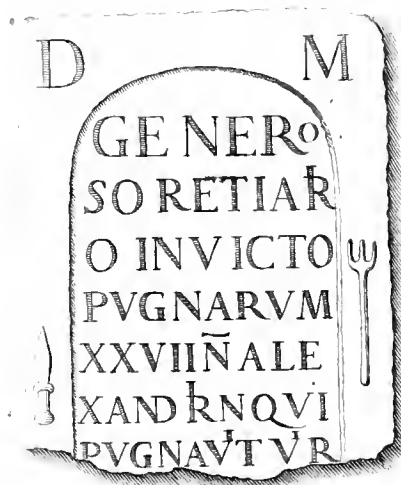 D M
GENERO
SO RETIARI
O INVICTO
PVGNARVM
XXVII N̄ ALE
XANDRIN QVI
PVGNAVIT VIR